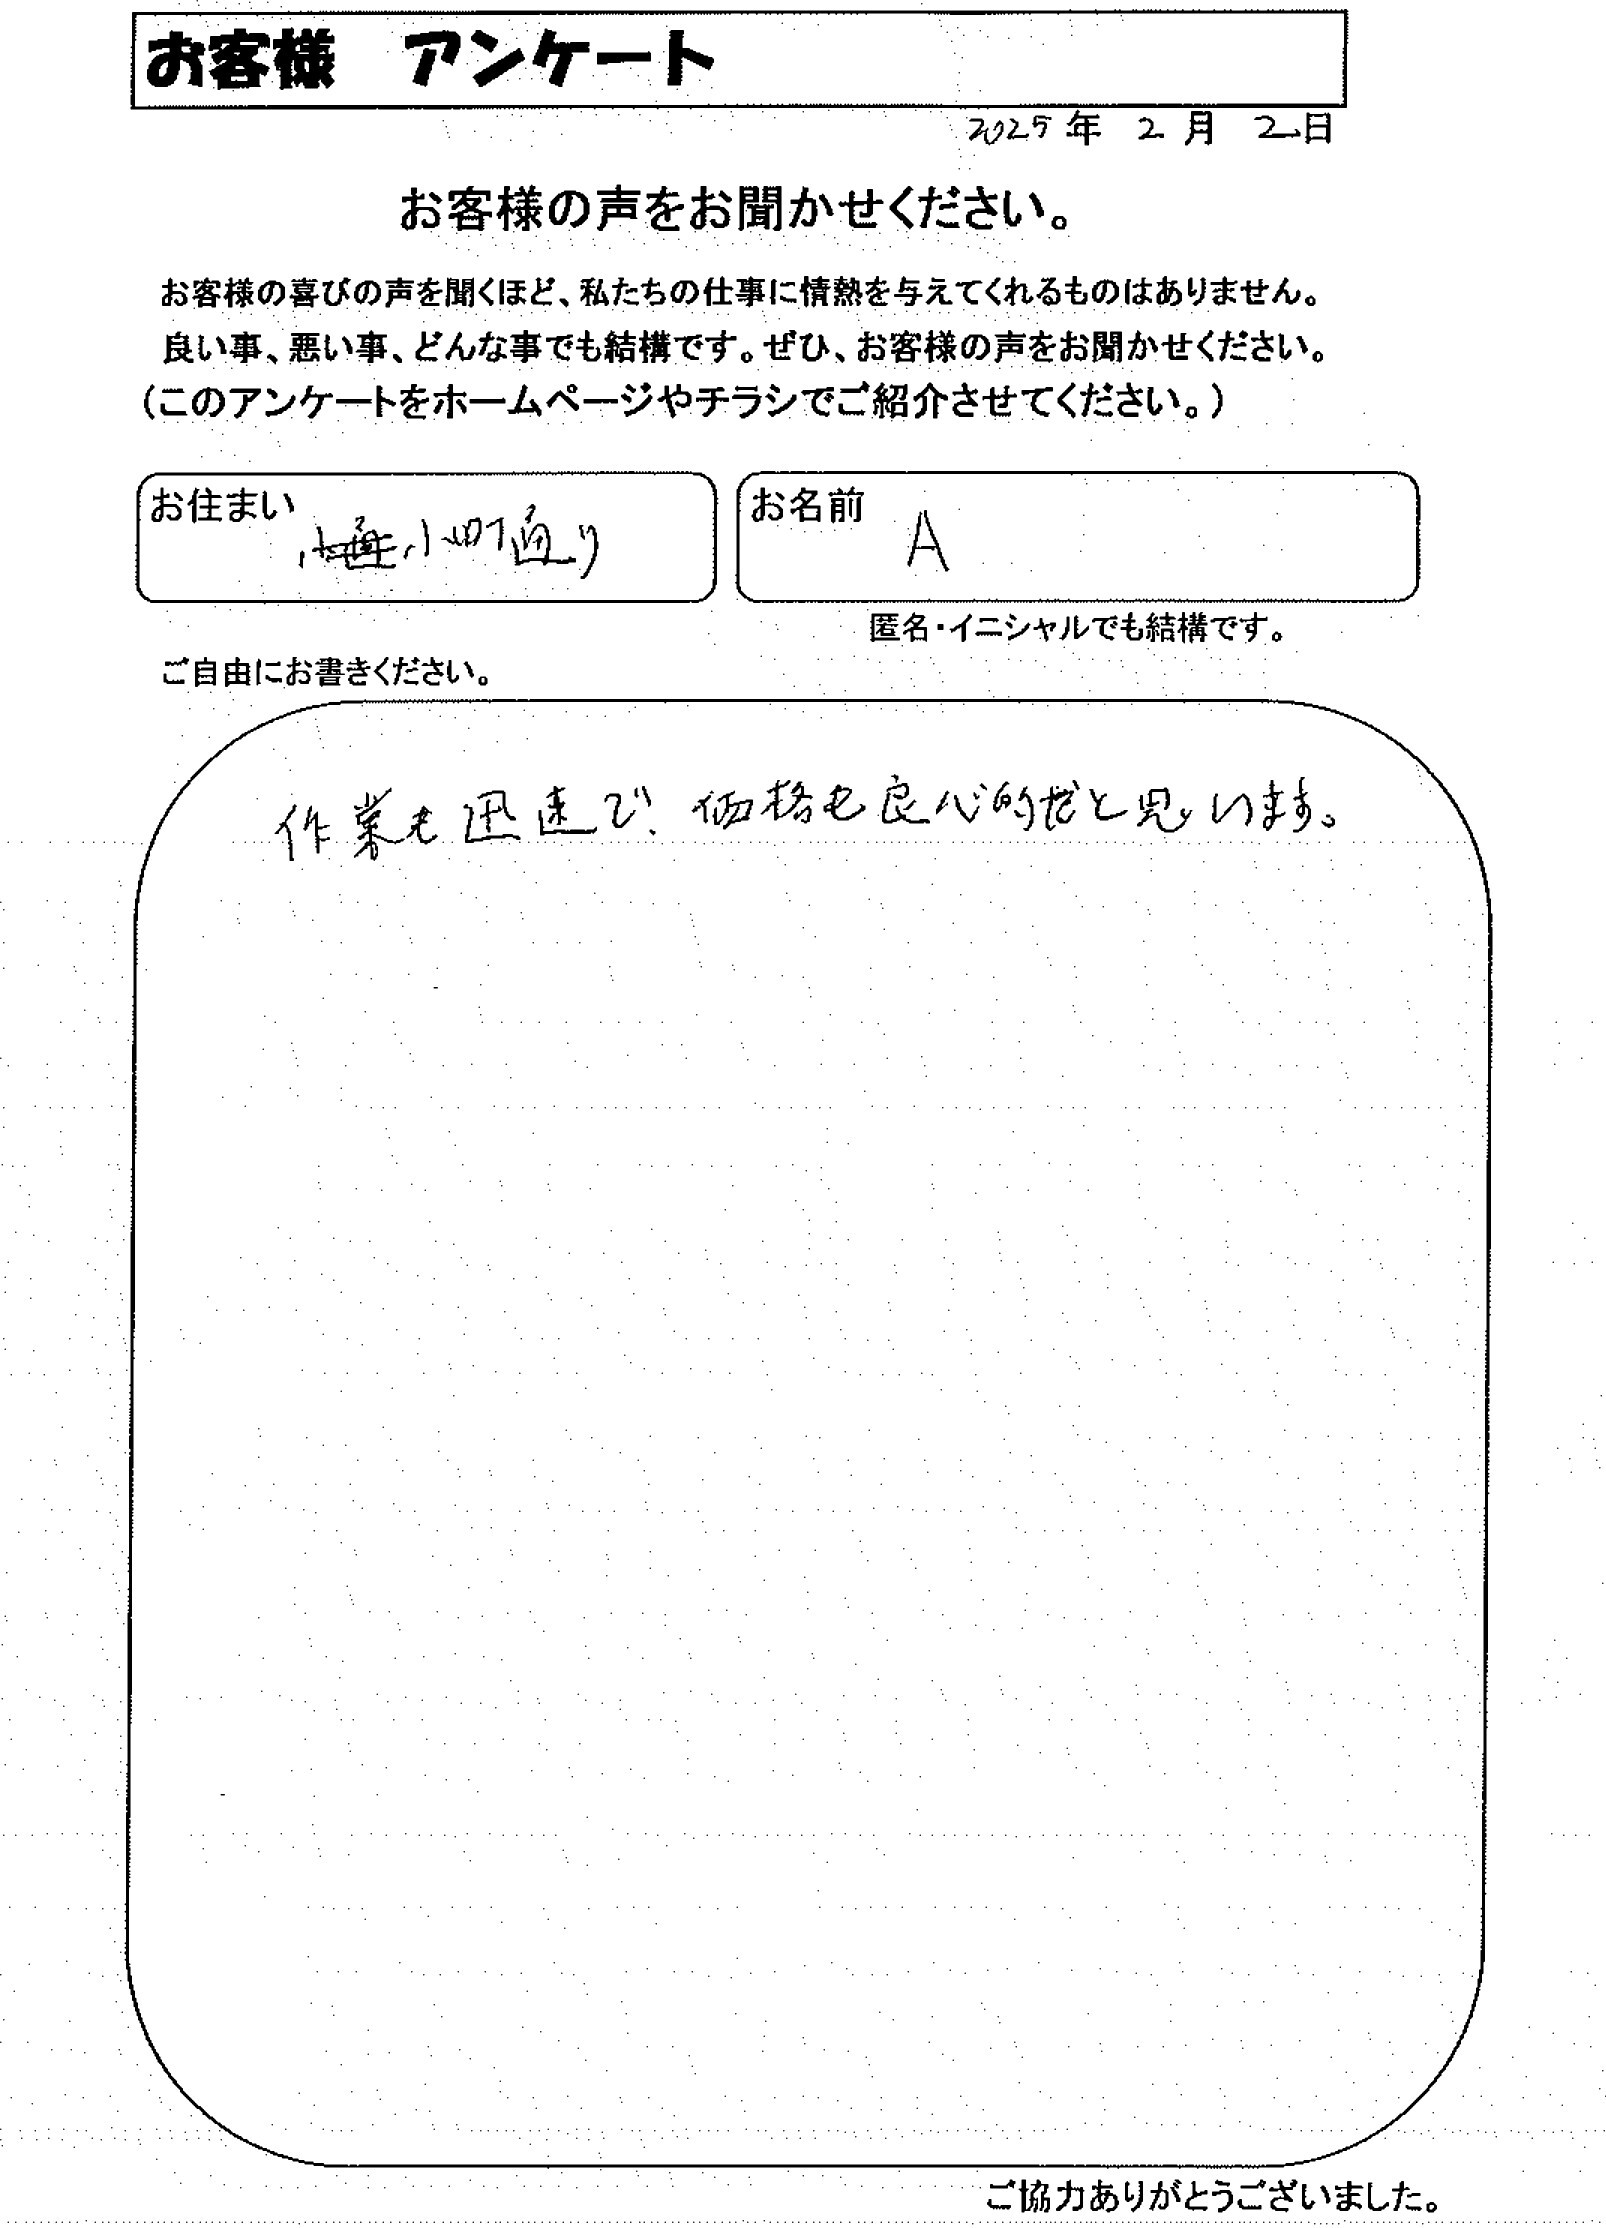 お客様　アンケート
2025年 2月 2日
お客様の声をお聞かせください。
お客様の喜びの声を聞くほど、私たちの仕事に情熱を与えてくれるものはありません。
良い事、悪い事、どんな事でも結構です。ぜひ、お客様の声をお聞かせください。
(このアンケートをホームページやチラシでご紹介させてください。)
お住まい 小町通り
お名前 A
匿名・イニシャルでも結構です。
ご自由にお書きください。
作業も迅速で、価格も良心的だと思います。
ご協力ありがとうございました。